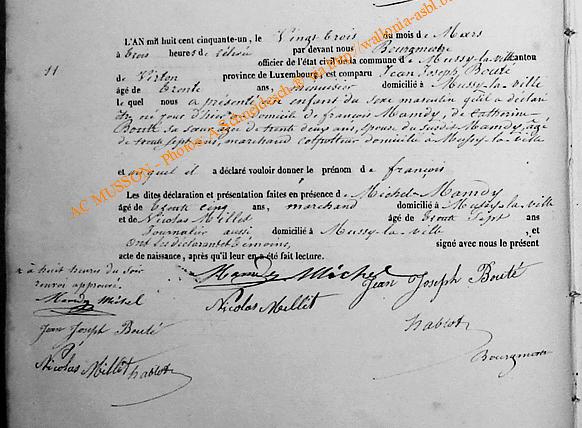 11
L'AN mil huit cent cinquante-un, le Vingt trois du mois de Mars
à trois heures de relevée par devant nous Bourgmestre
officier de l'état civil de la commune de Mussy-la-ville canton
de Virton province de Luxembourg, est comparu Jean Joseph Bouté
âgé de trente ans, menuisier domicilié à Mussy-la-ville
lequel nous a présenté un enfant du sexe masculin qu'il a déclaré
être né jour d'hier domicile de françois Mamdy, de Catherine
Bouté sa sœur agée de trente deux ans, épouse du susdit Mamdy, âgé
de trente sept ans, marchand colporteur domicilié à Mussy-la-ville
et auquel il a déclaré vouloir donner le prénom de françois
Les dites déclaration et présentation faites en présence de Michel Mamdy
âgé de trente cinq ans, marchand domicilié à Mussy-la-ville
et de Nicolas Millet âgé de trente sept ans
Journalier aussi domicilié à Mussy-la-ville, et
ont les déclarant et témoins, signé avec nous le présent
acte de naissance, après qu'il leur en a été fait lecture.
à huit heures du soir
renvoi approuvé.
Mamdy Michel
Jean Joseph Bouté
Nicolas Millet hablot
Mamdy Michel
Jean Joseph Bouté
Nicolas Millet
hablot
Bourgmestre
AC MUSSON - Photos A.Schneidesch @ http://wallonia-asbl.b